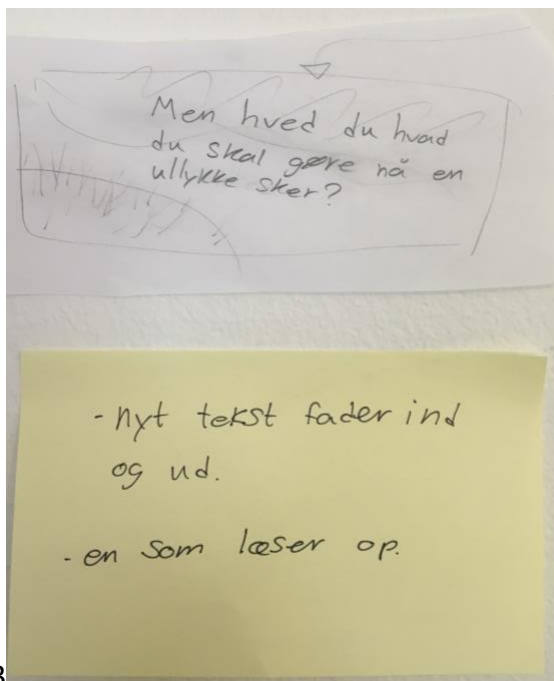 Men hved du hvad
du skal gøre nå en
ullykke sker?
- nyt tekst fader ind
og ud.
- en som læser op.
3